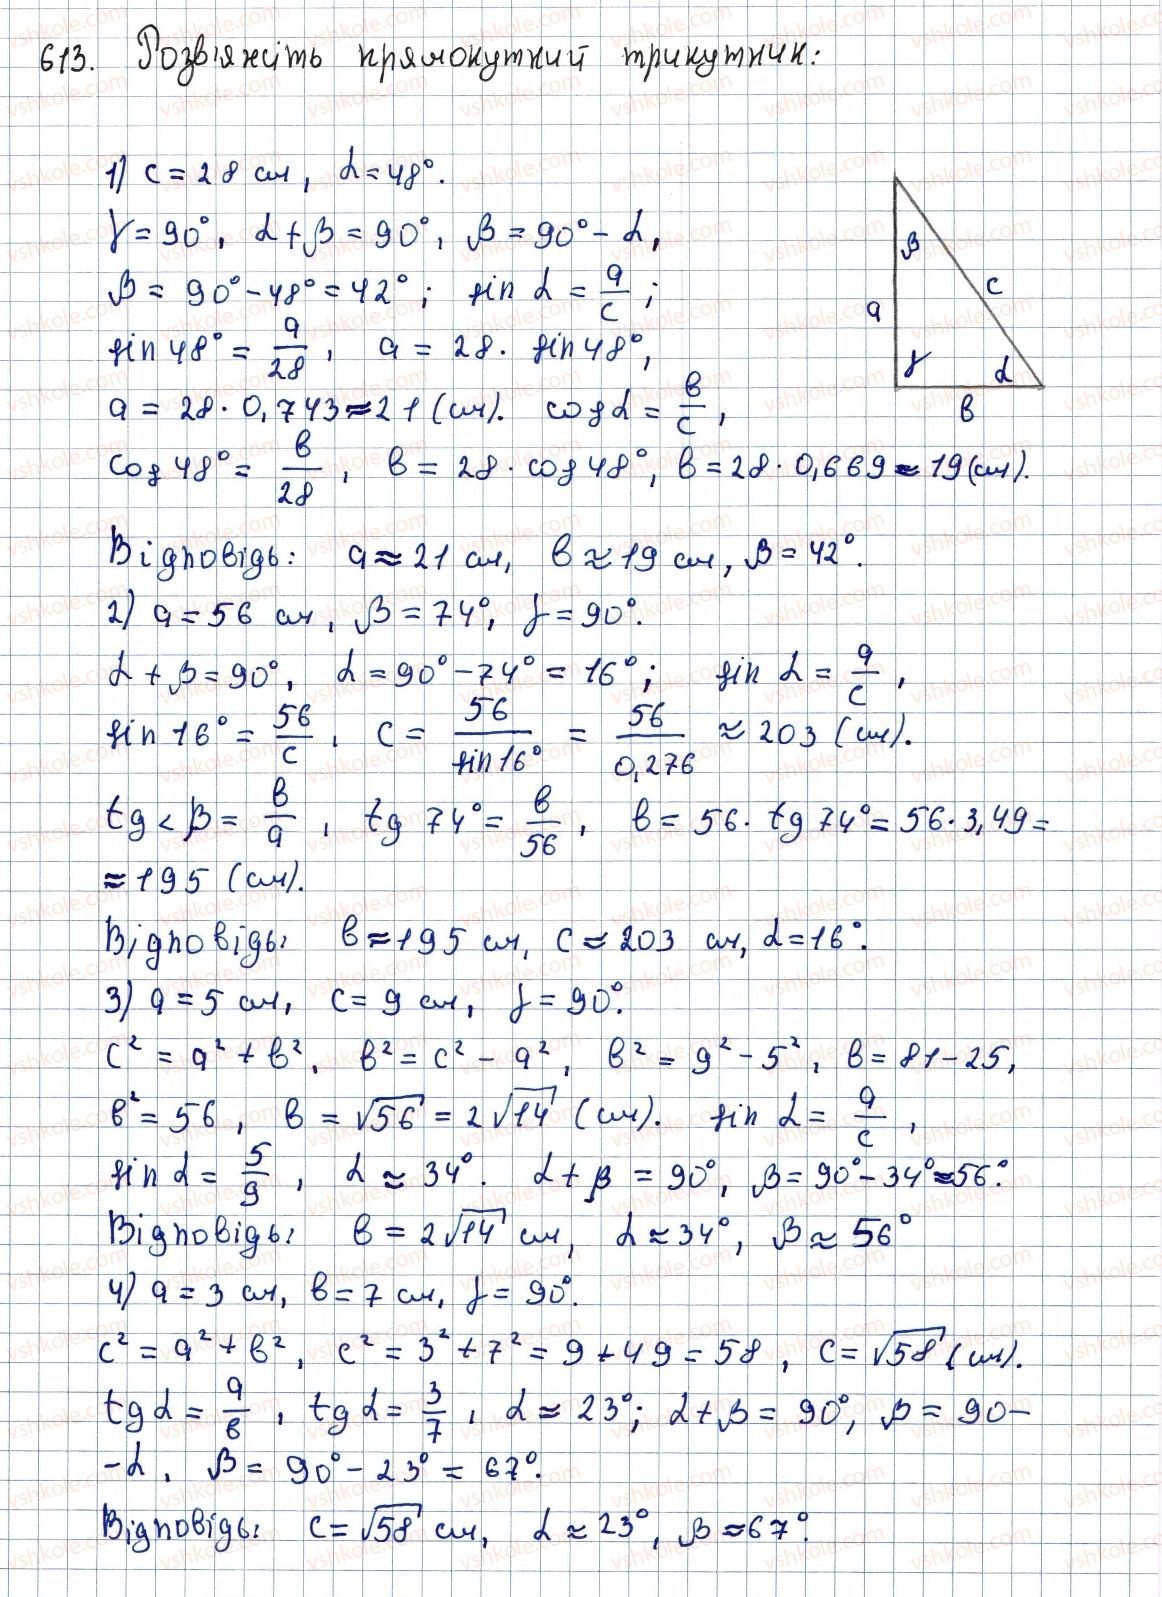 613. Розв'яжіть прямокутний трикутник:
1) c = 28 см, α = 48°.
γ = 90°, α + β = 90°, β = 90° − α,
β = 90° − 48° = 42°; sin α = a/c;
sin 48° = a/28, a = 28 · sin 48°,
a = 28 · 0,743 ≈ 21 (см). cos α = в/c,
cos 48° = в/28, в = 28 · cos 48°, в = 28 · 0,669 ≈ 19 (см).
Відповідь: a ≈ 21 см, в ≈ 19 см, β = 42°.
2) a = 56 см, β = 74°, γ = 90°.
α + β = 90°, α = 90° − 74° = 16°; sin α = a/c,
sin 16° = 56/c, c = 56/sin 16° = 56/0,276 ≈ 203 (см).
tg < β = в/a, tg 74° = в/56, в = 56 · tg 74° = 56 · 3,49 =
≈ 195 (см).
Відповідь: в ≈ 195 см, c ≈ 203 см, α = 16°.
3) a = 5 см, c = 9 см, γ = 90°.
c² = a² + в², в² = c² − a², в² = 9² − 5², в = 81 − 25,
в² = 56, в = √56 = 2√14 (см). sin α = a/c,
sin α = 5/9, α ≈ 34°. α + β = 90°, β = 90° − 34° ≈ 56°.
Відповідь: в = 2√14 см, α ≈ 34°, β ≈ 56°
4) a = 3 см, в = 7 см, γ = 90°.
c² = a² + в², c² = 3² + 7² = 9 + 49 = 58, c = √58 (см).
tg α = a/в, tg α = 3/7, α ≈ 23°; α + β = 90°, β = 90 −
− α, β = 90° − 23° = 67°.
Відповідь: c = √58 см, α ≈ 23°, β ≈ 67°.
β
c
a
γ
α
в
vshkole.com